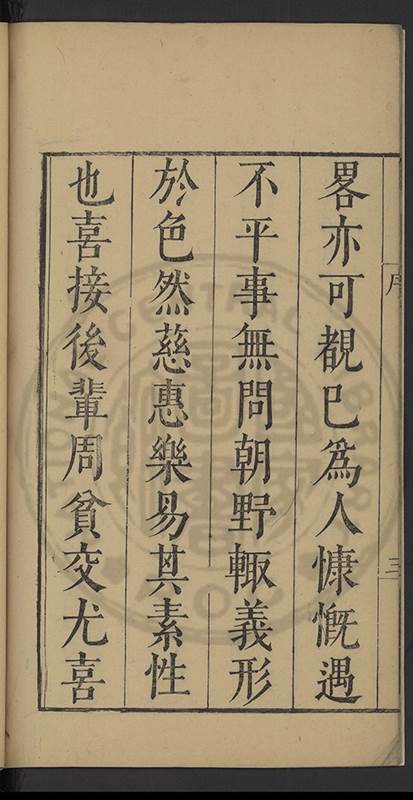 序
三
畧亦可覩巳爲人慷慨遇
不平事無問朝野輙義形
於色然慈惠樂易其素性
也喜接後輩周貧交尤喜